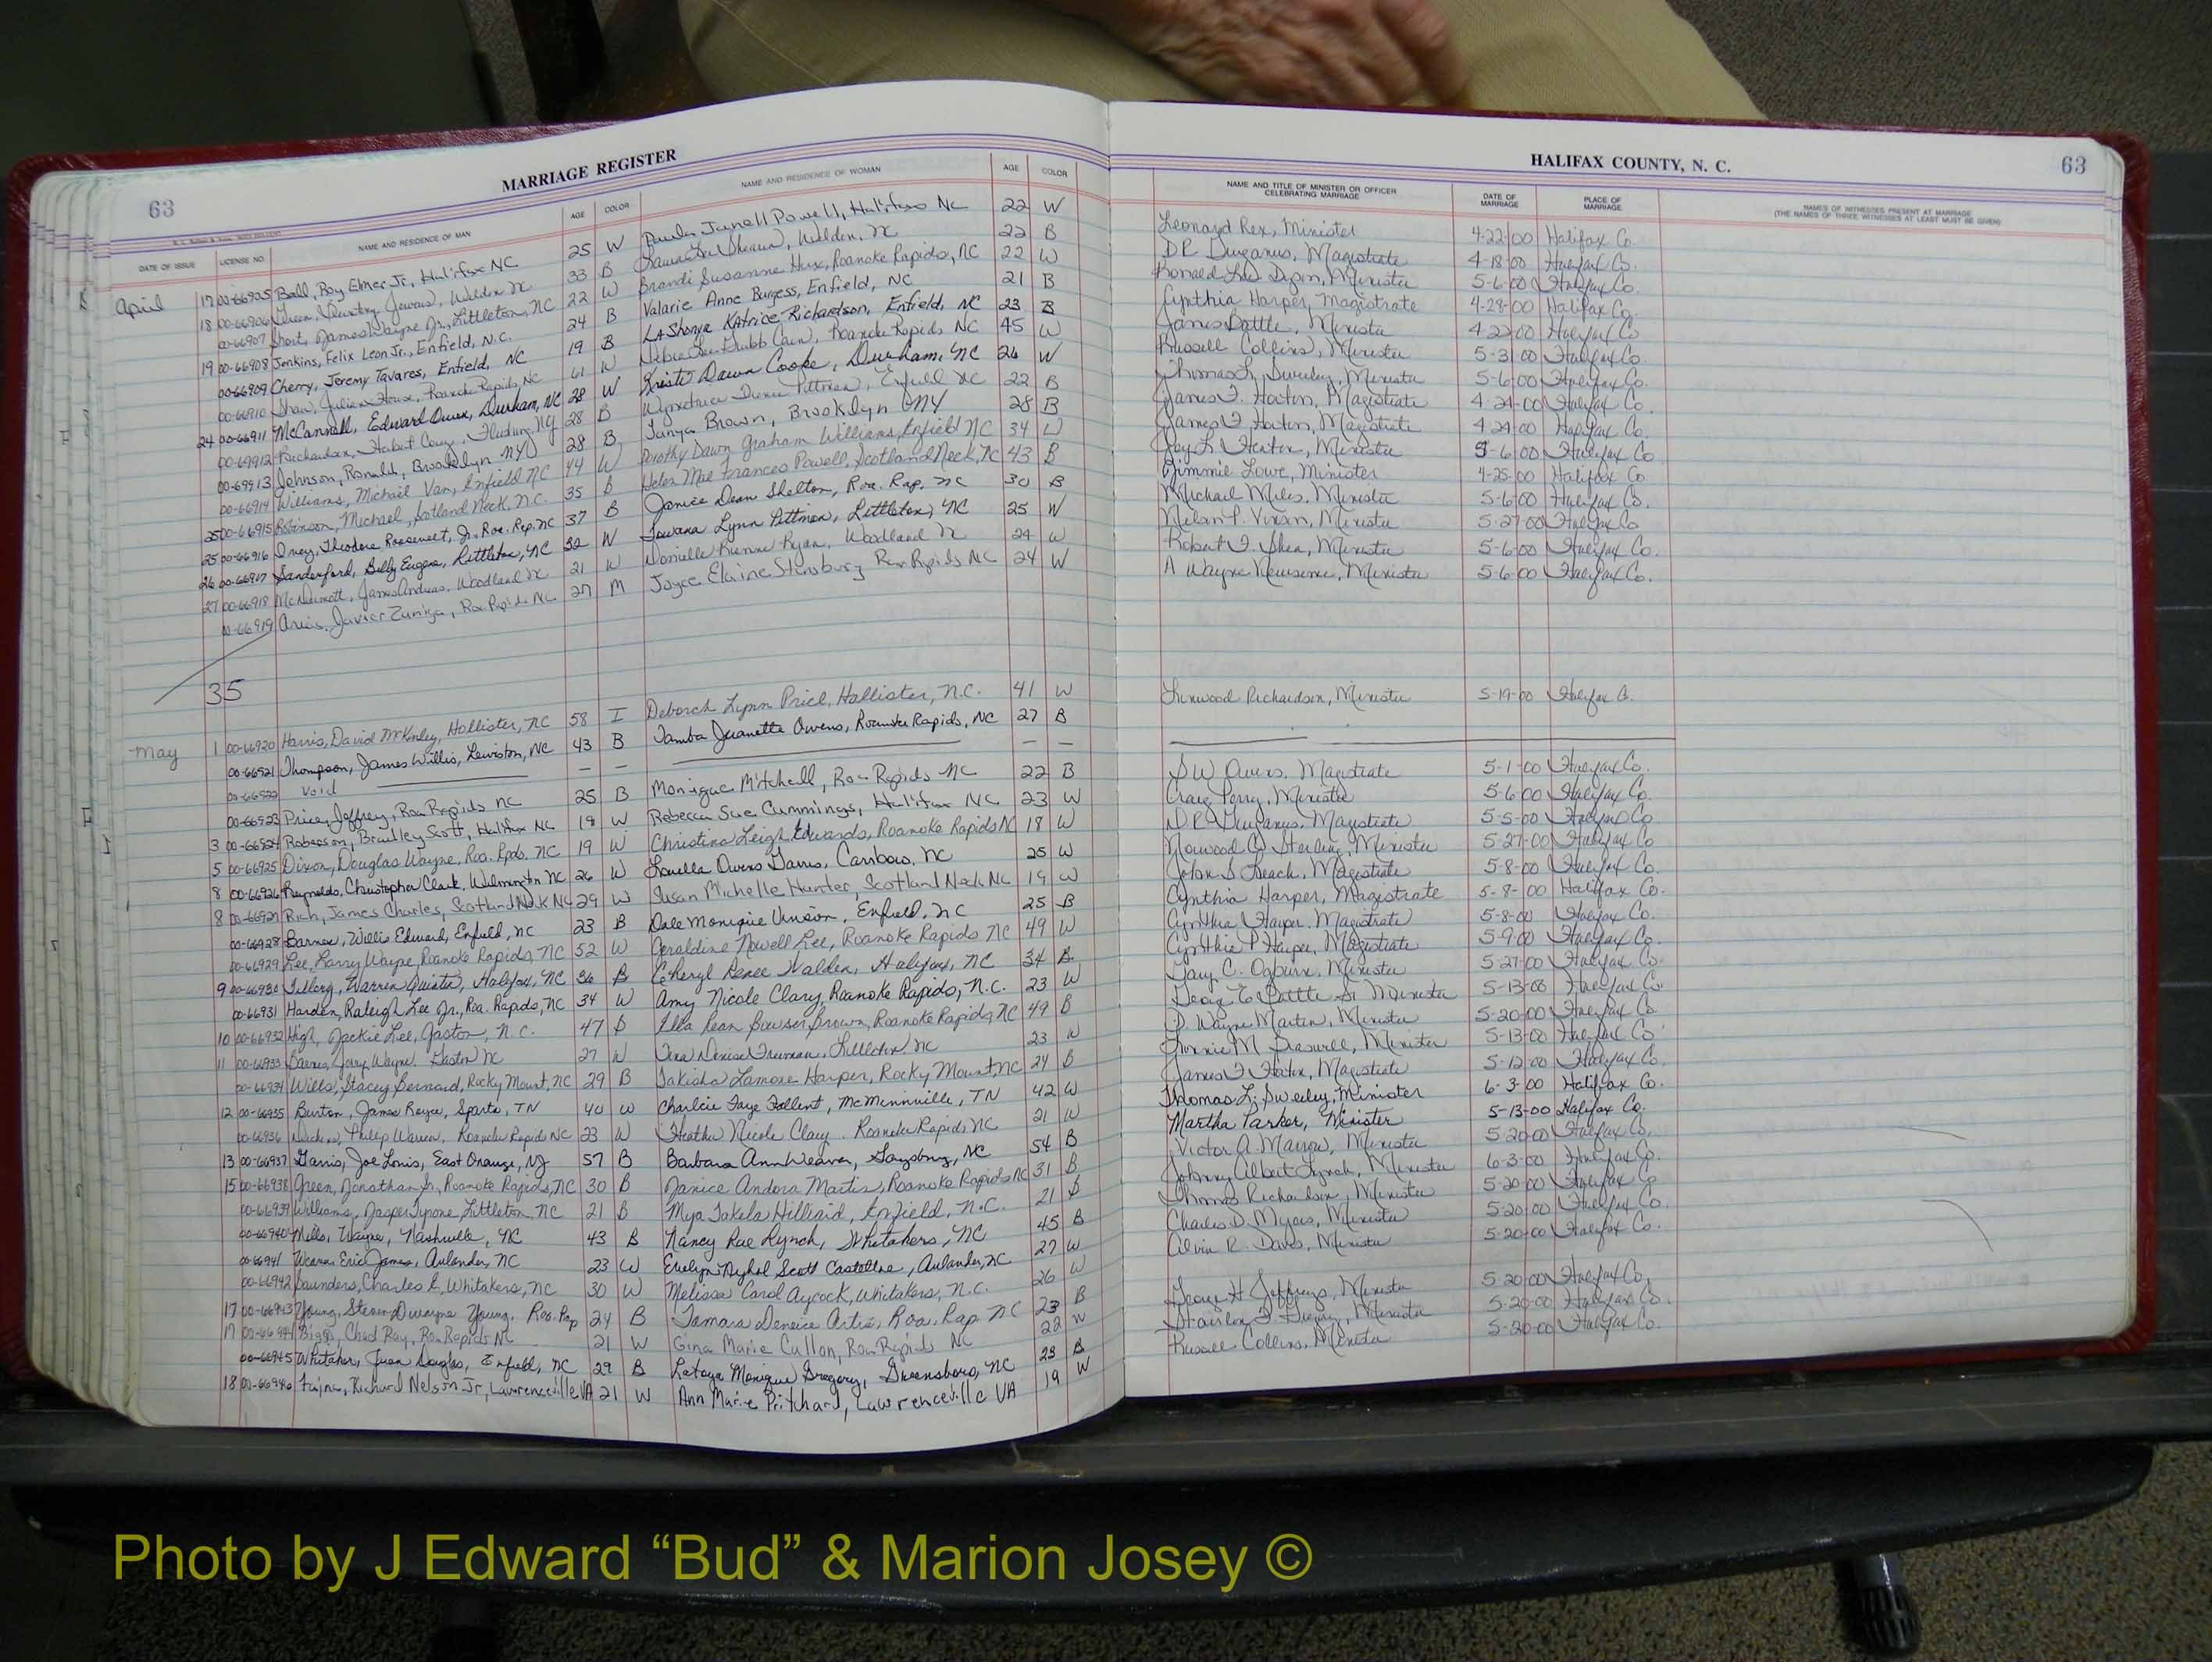 MARRIAGE REGISTER
HALIFAX COUNTY, N. C.
63
63
DATE OF ISSUE LICENSE NO. NAME AND RESIDENCE OF MAN AGE COLOR NAME AND RESIDENCE OF WOMAN AGE COLOR NAME AND TITLE OF MINISTER OR OFFICER CELEBRATING MARRIAGE DATE OF MARRIAGE PLACE OF MARRIAGE NAMES OF WITNESSES PRESENT AT MARRIAGE (THE NAMES OF THREE WITNESSES AT LEAST MUST BE GIVEN)
April 17 00-66905 Ball, Roy Elmer Jr, Halifax NC 25 W Paula Janell Powell, Halifax NC 22 W Leonard Rex, Minister 4-22-00 Halifax Co.
18 00-66906 Green, Jr., Weldon NC 33 B Weldon, NC 22 B D R Magistrate 4-18-00 Halifax Co.
00-66907 Short, James Wayne Jr., Littleton, NC 22 W Brandi Susanne Hux, Roanoke Rapids, NC 22 W Ronald Lee Minister 5-6-00 Halifax Co.
19 00-66908 Jenkins, Felix Leon Jr., Enfield, N.C. 24 B Valarie Anne Burgess, Enfield, NC 21 B Cynthia Harper, Magistrate 4-28-00 Halifax Co.
00-66909 Cherry, Jeremy Tavares, Enfield, NC 19 B LaShonya Katrice Richardson, Enfield, NC 23 B James Battle, Minister 4-22-00 Halifax Co
00-66910 Shaw, Julian House, Roanoke Rapids, NC 61 W Cain, Roanoke Rapids NC 45 W Russell Collins, Minister 5-3-00 Halifax Co.
24 00-66911 McCannell, Edward Owen, Durham, NC 28 W Kristi Dawn Cooke, Durham, NC 26 W Thomas L. Minister 5-6-00 Halifax Co.
00-69912 Richardson, NY 28 B Pittman, Enfield NC 22 B James F. Magistrate 4-24-00 Halifax Co.
00-69913 Johnson, Ronald, Brooklyn NY 28 B Tanya Brown, Brooklyn NY 28 B James F Magistrate 4-24-00 Halifax Co.
00-66914 Williams, Michael Van, Enfield NC 44 W Dorothy Dawn Graham Williams, Enfield NC 34 W Minister 5-6-00 Halifax Co
25 00-66915 Robinson, Michael, Scotland Neck, N.C. 35 B Helen Mae Frances Powell, Scotland Neck, NC 43 B Jimmie Lowe, Minister 4-25-00 Halifax Co
25 00-66916 Ivey, Theodore Roosevelt, Jr., Roa. Rap. NC 37 B Janice Dean Shelton, Roa. Rap. NC 30 B Michael Miles, Minister 5-6-00 Halifax Co.
26 00-66917 Sanderford, Billy Eugene, Littleton, NC 32 W Towana Lynn Pittman, Littleton, NC 25 W Minister 5-27-00 Halifax Co
27 00-66918 McDermott, James Andrew, Woodland NC 21 W Danielle Ryan, Woodland NC 24 W Robert F. Shea, Minister 5-6-00 Halifax Co.
00-66919 Arias, Javier Zuniga, Roa Rapids NC 27 M Joyce Elaine Stansbury Roa Rapids NC 24 W A Wayne Newsome, Minister 5-6-00 Halifax Co.
35
May 1 00-66920 Harris, David McKinley, Hollister, NC 58 I Deborah Lynn Price, Hollister, N.C. 41 W Linwood Richardson, Minister 5-19-00 Halifax Co.
00-66921 Thompson, James Willis, Lewiston, NC 43 B Tamba Juanette Owens, Roanoke Rapids, NC 27 B
00-66922 Void
00-66923 Price, Jeffrey, Roa Rapids NC 25 B Monique Mitchell, Roa Rapids NC 22 B S W Owens, Magistrate 5-1-00 Halifax Co.
3 00-66924 Roberson, Bradley Scott, Halifax NC 19 W Rebecca Sue Cummings, Halifax NC 23 W Craig Perry, Minister 5-6-00 Halifax Co.
5 00-66925 Dixon, Douglas Wayne, Roa. Rpds. NC 19 W Christina Leigh Edwards, Roanoke Rapids NC 18 W Magistrate 5-5-00 Halifax Co
8 00-66926 Reynolds, Christopher Clark, Wilmington NC 26 W Louella Owens Carrboro, NC 25 W Minister 5-27-00 Halifax Co
8 00-66927 Rich, James Charles, Scotland Neck NC 29 W Susan Michelle Hunter, Scotland Neck NC 19 W John S Leach, Magistrate 5-8-00 Halifax Co.
00-66928 Barnes, Willis Edward, Enfield, NC 23 B Dale Monique Vinson, Enfield, NC 25 B Cynthia Harper, Magistrate 5-8-00 Halifax Co.
00-66929 Lee, Larry Wayne, Roanoke Rapids, NC 52 W Geraldine Nowell Lee, Roanoke Rapids NC 49 W Cynthia Harper, Magistrate 5-8-00 Halifax Co.
9 00-66930 Tillery, Warren Halifax, NC 36 B Cheryl Renee Walden, Halifax, NC 34 B Cynthia P Harper, Magistrate 5-9-00 Halifax Co.
00-66931 Harden, Raleigh Lee Jr., Roa. Rapids, NC 34 W Amy Nicole Clary, Roanoke Rapids, N.C. 23 W Gary C. Ogburn, Minister 5-27-00 Halifax Co.
10 00-66932 High, Jackie Lee, Gaston, N.C. 47 B Ella Bowser Brown, Roanoke Rapids, NC 49 B Minister 5-13-00 Halifax Co.
11 00-66933 Barnes, Jerry Wayne, Gaston NC 27 W Tina Denise Littleton NC 23 W D. Wayne Martin, Minister 5-20-00 Halifax Co
00-66934 Wills, Stacey Bernard, Rocky Mount, NC 29 B Takisha Lamone Harper, Rocky Mount, NC 24 B Minister 5-13-00 Halifax Co.
12 00-66935 Burton, James Royce, Sparta, TN 40 W Charlcie Faye McMinnville, TN 42 W James F Magistrate 5-12-00 Halifax Co.
00-66936 Philip Warren, Roanoke Rapids NC 23 W Heather Nicole Clary Roanoke Rapids, NC 21 W Thomas L. Minister 6-3-00 Halifax Co.
13 00-66937 Garris, Joe Louis, East Orange, NJ 57 B Barbara Ann Weaver, Gaysburg, NC 54 B Martha Parker, Minister 5-13-00 Halifax Co.
15 00-66938 Green, Jonathan Jr., Roanoke Rapids, NC 30 B Janice Andora Martin, Roanoke Rapids NC 31 B Victor A. Marrow, Minister 5-20-00 Halifax Co.
00-66939 Williams, Jasper Tyrone, Littleton, NC 21 B Mya Takela Hilliard, Enfield, N.C. 21 B Johnny Albert Lynch, Minister 6-3-00 Halifax Co.
00-66940 Mills, Wayne, Nashville, NC 43 B Nancy Rae Lynch, Whitakers, NC 45 B Thomas Richardson, Minister 5-20-00 Halifax Co
00-66941 Eric James, Aulander, NC 23 W Evelyn Scott Castelloe, Aulander, NC 27 W Charles D. Myers, Minister 5-20-00 Halifax Co.
00-66942 Saunders, Charles E, Whitakers, NC 30 W Melissa Carol Aycock, Whitakers, N.C. 26 W Alvin R. Davis, Minister 5-20-00 Halifax Co.
17 00-66943 Young, Steven Dwayne Young, Roa. Rap 24 B Tamara Deneice Artis, Roa. Rap. NC 23 B George H Jeffreys, Minister 5-20-00 Halifax Co.
17 00-66944 Biggs, Chad Ray, Roa Rapids NC 21 W Gina Marie Cullom, Roa Rapids NC 22 W Minister 5-20-00 Halifax Co.
00-66945 Whitaker, Juan Douglas, Enfield, NC 29 B Latoya Monique Gregory, Greensboro, NC 23 B Russell Collins, Minister 5-20-00 Halifax Co.
18 00-66946 Richard Nelson Jr, Lawrenceville VA 21 W Ann Marie Pritchard, Lawrenceville VA 19 W
Photo by J Edward “Bud” & Marion Josey ©